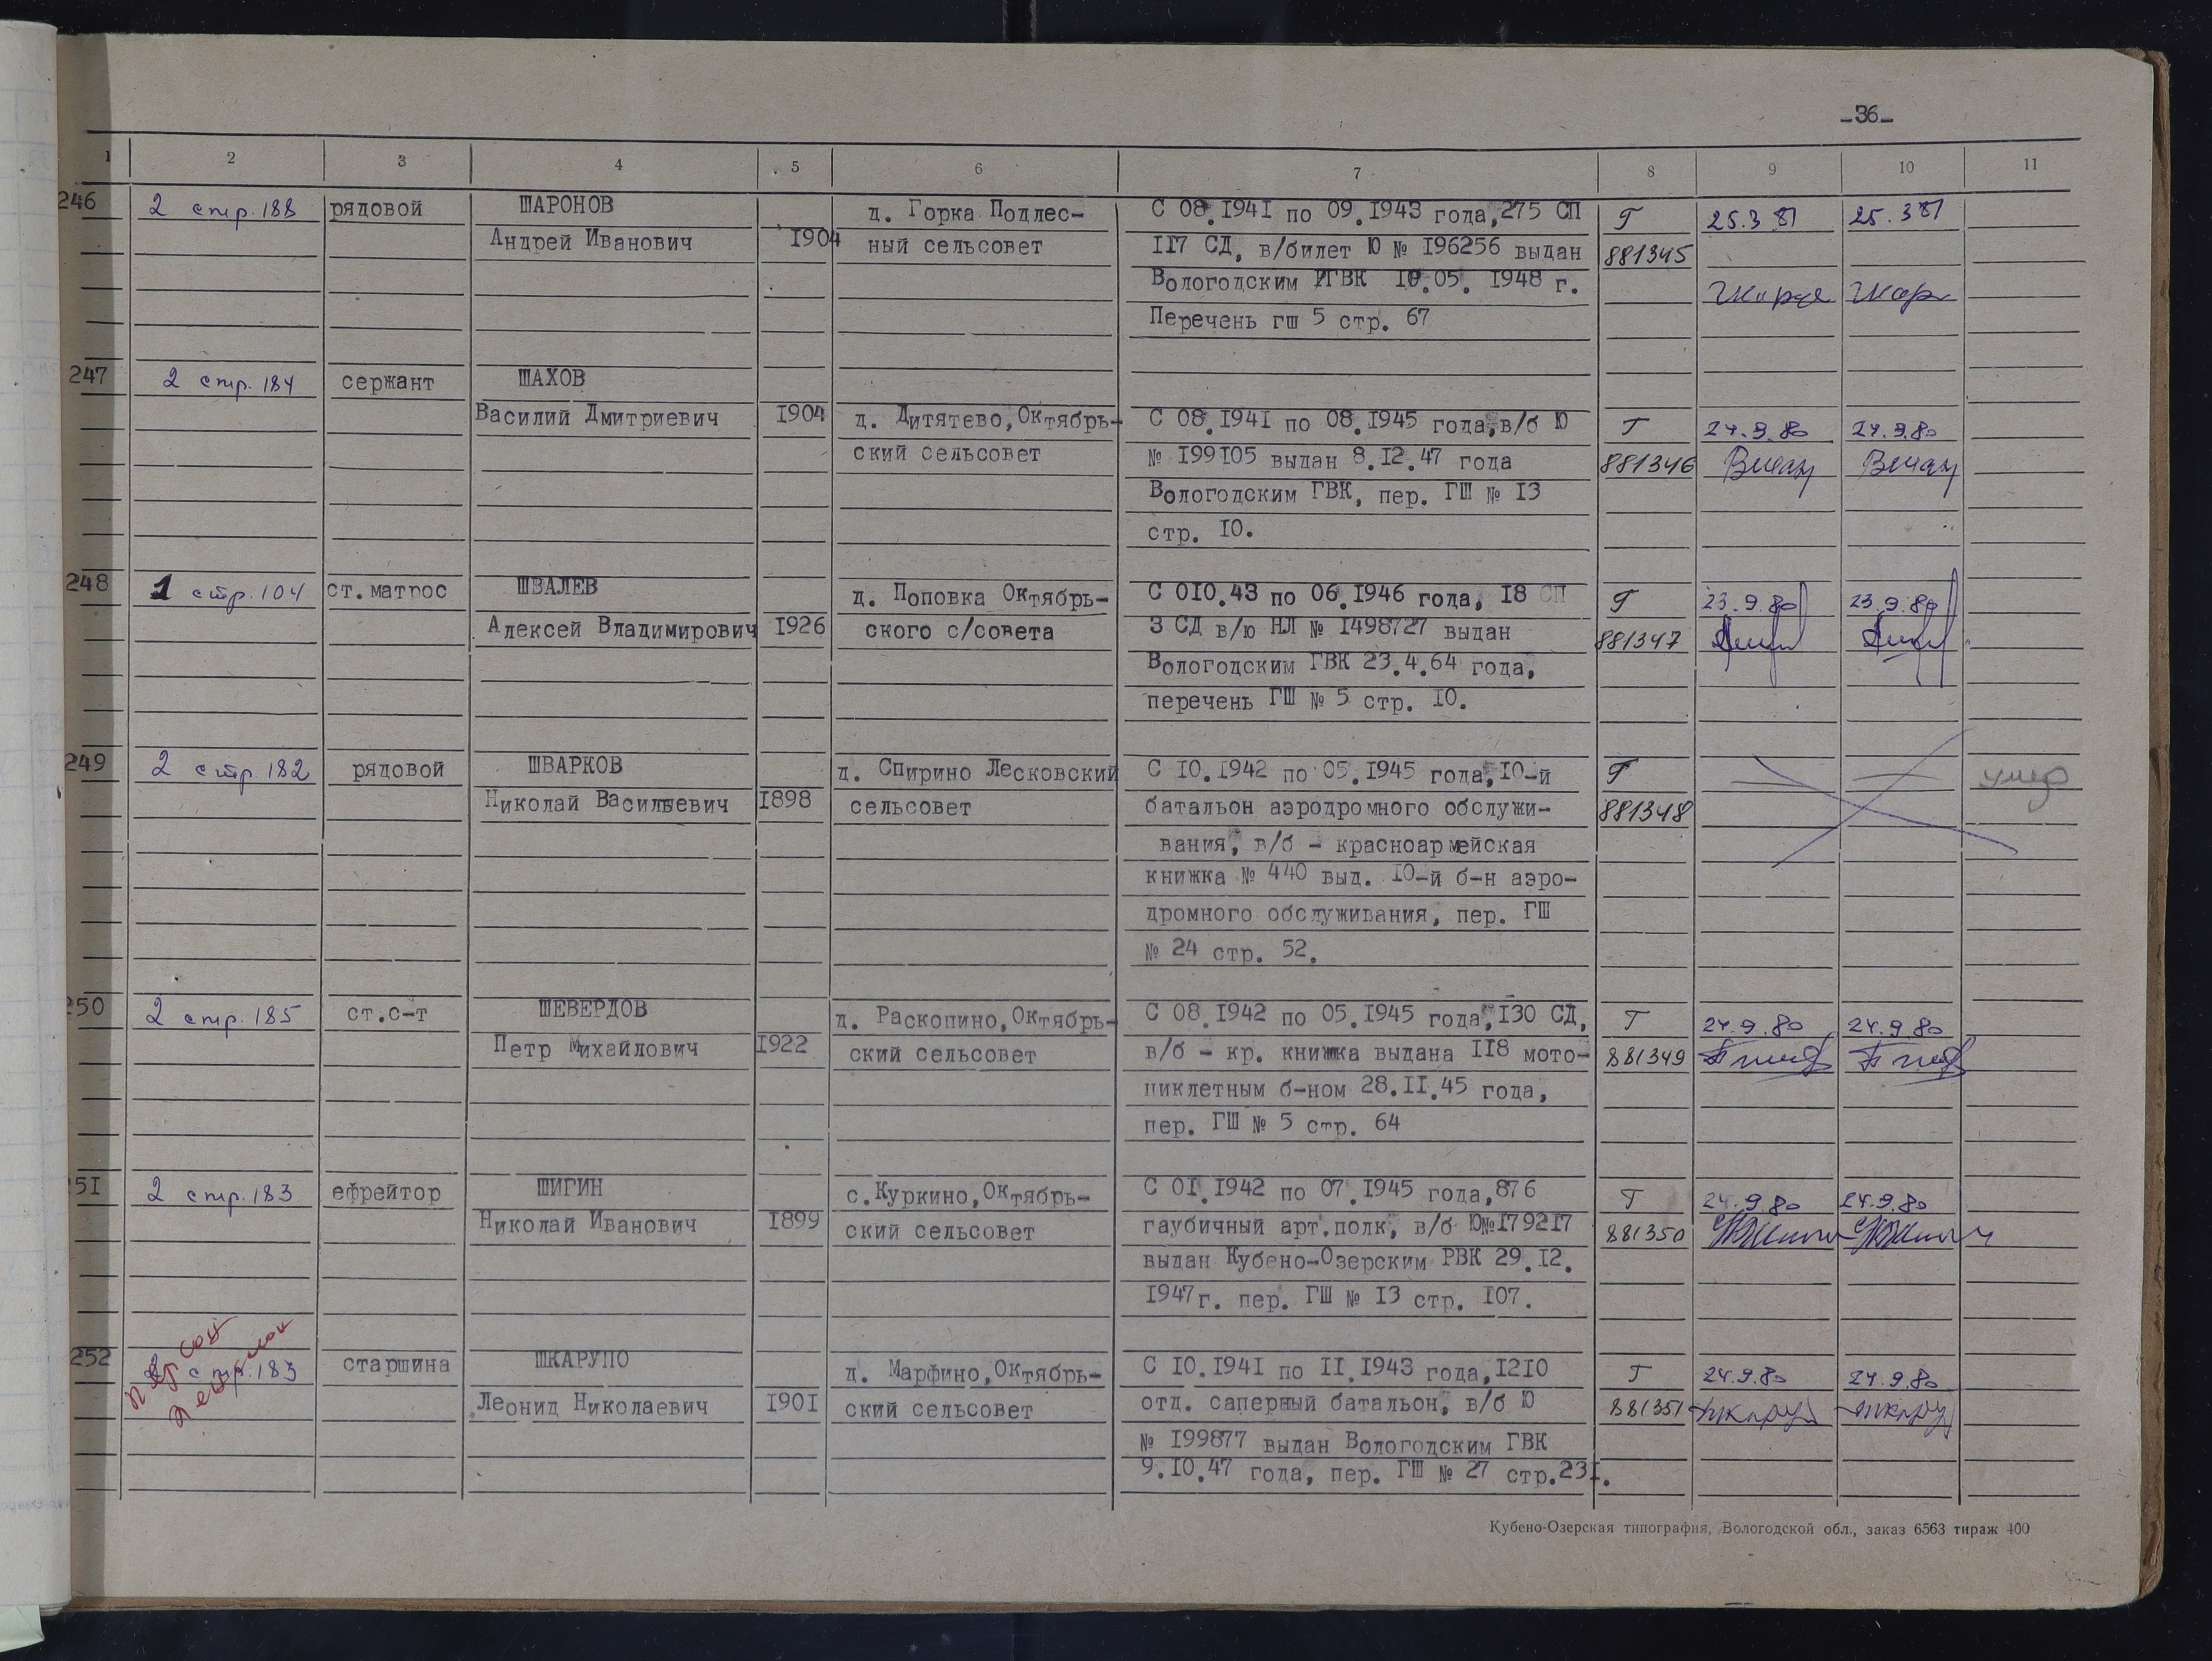 -36-
1 2 3 4 5 6 7 8 9 10 11
246 2 стр. 188 рядовой ШАРОНОВ д. Горка Подлес- С 08.1941 по 09.1943 года, 275 СП Г 25.3 81 25.3 81
Андрей Иванович 1904 ный сельсовет 117 СД, в/билет Ю № 196256 выдан 881345
Вологодским ГВК 10.05. 1948 г.
Перечень гш 5 стр. 67
247 2 стр. 184 сержант ШАХОВ
Василий Дмитриевич 1904 д. Дитятево, Октябрь- С 08.1941 по 08.1945 года, в/б Ю Г 24.9.80 24.9.80
ский сельсовет № 199105 выдан 8.12.47 года 881346
Вологодским ГВК, пер. ГШ № 13
стр. 10.
248 1 стр. 104 ст. матрос ШВАЛЕВ д. Поповка Октябрь- С 010.43 по 06.1946 года, 18 СП Г 23.9.80 23.9.80
Алексей Владимирович 1926 ского с/совета 3 СД в/ю НЛ № 1498727 выдан 881347
Вологодским ГВК 23.4.64 года,
перечень ГШ № 5 стр. 10.
249 2 стр 182 рядовой ШВАРКОВ д. Спирино Лесковский С 10.1942 по 05.1945 года, 10-й Г умер
Николай Васильевич 1898 сельсовет батальон аэродромного обслужи- 881348
вания, в/б - красноармейская
книжка № 440 выд. 10-й б-н аэро-
дромного обслуживания, пер. ГШ
№ 24 стр. 52.
250 2 стр. 185 ст.с-т ШЕВЕРДОВ д. Раскопино, Октябрь- С 08.1942 по 05.1945 года, 130 СД, Г 24.9.80 24.9.80
Петр Михайлович 1922 ский сельсовет в/б - кр. книжка выдана 118 мото- 881349
циклетным б-ном 28.11.45 года,
пер. ГШ № 5 стр. 64
251 2 стр. 183 ефрейтор ШИГИН с.Куркино, Октябрь- С 01.1942 по 07.1945 года, 876 Г 24.9.80 24.9.80
Николай Иванович 1899 ский сельсовет гаубичный арт.полк, в/б Ю№179217 881350
выдан Кубено-Озерским РВК 29.12.
1947г. пер. ГШ № 13 стр. 107.
252 2 стр. 183 старшина ШКАРУПО д. Марфино, Октябрь- С 10.1941 по 11.1943 года, 1210 Г 24.9.80 24.9.80
Леонид Николаевич 1901 ский сельсовет отд. саперный батальон, в/б Ю 881351
№ 199877 выдан Вологодским ГВК
9.10.47 года, пер. ГШ № 27 стр.231.
Кубено-Озерская типография, Вологодской обл., заказ 6563 тираж 400